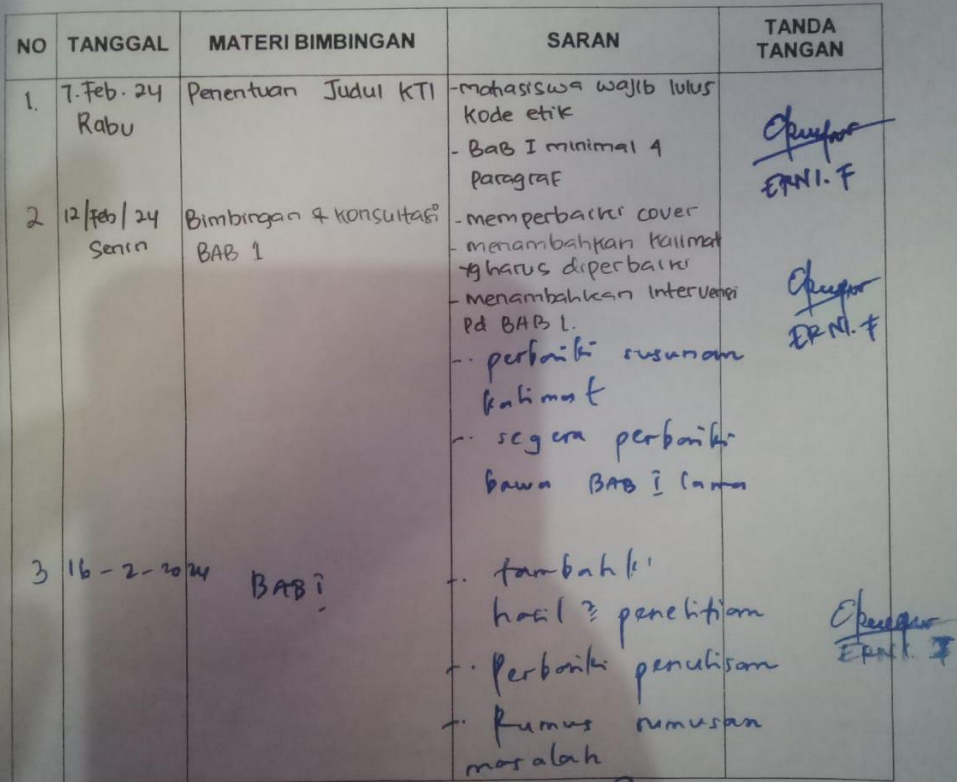 NO TANGGAL MATERI BIMBINGAN SARAN TANDA TANGAN
1. 7. Feb. 24 Penentuan Judul KTI - mahasiswa wajib lulus
Rabu kode etik
- BaB I minimal 4
Paragraf
ERNI. F
2 12/Feb/24 Bimbingan & konsultasi - memperbaiki cover
Senin BAB 1 - menambahkan kalimat
yg harus diperbaiki
- menambahkan Intervensi
Pd BAB 1.
ERNI. F
- perbaiki susunan
kalimat
- segera perbaiki
bawa BAB I lama
3 16-2-2024 BAB I - tambah
hasil 2 penelitian
ERNI. F
- Perbaiki penulisan
- Rumus rumusan
masalah